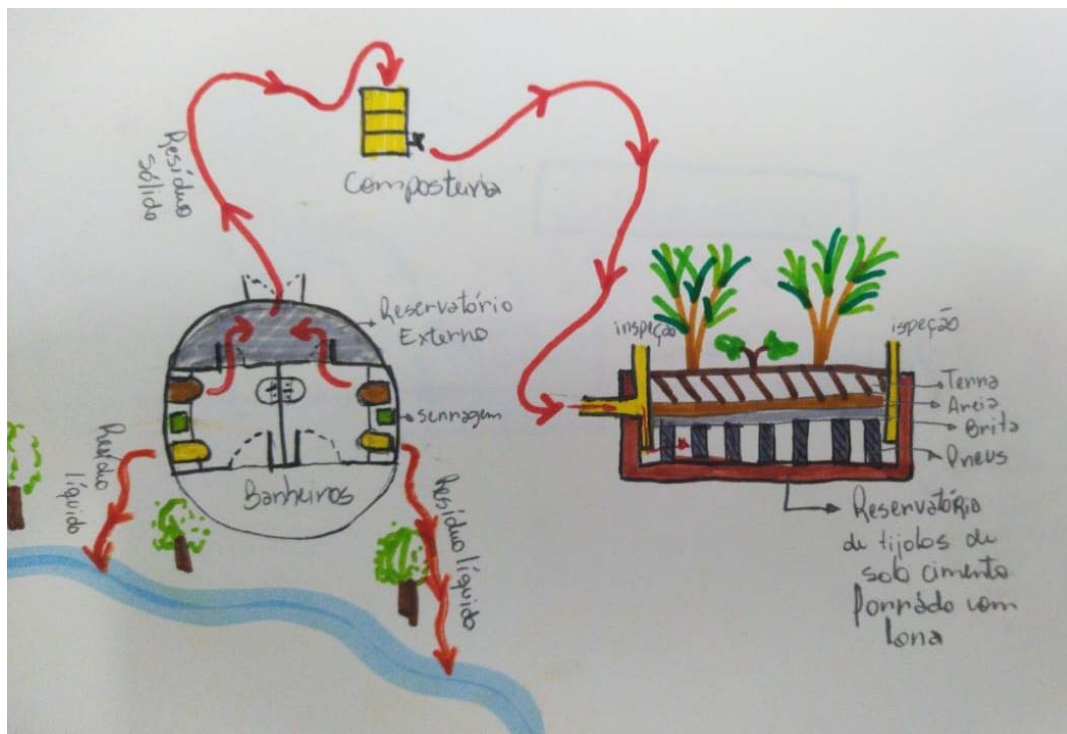 Resíduo
sólido
Composteria
Reservatório
Externo
serragem
Banheiros
Resíduo
líquido
Resíduo líquido
inspeção
ispeção
Terra
Areia
Brita
Pneus
Reservatório
de tijolos de
sob cimento
Forrádo com
lona